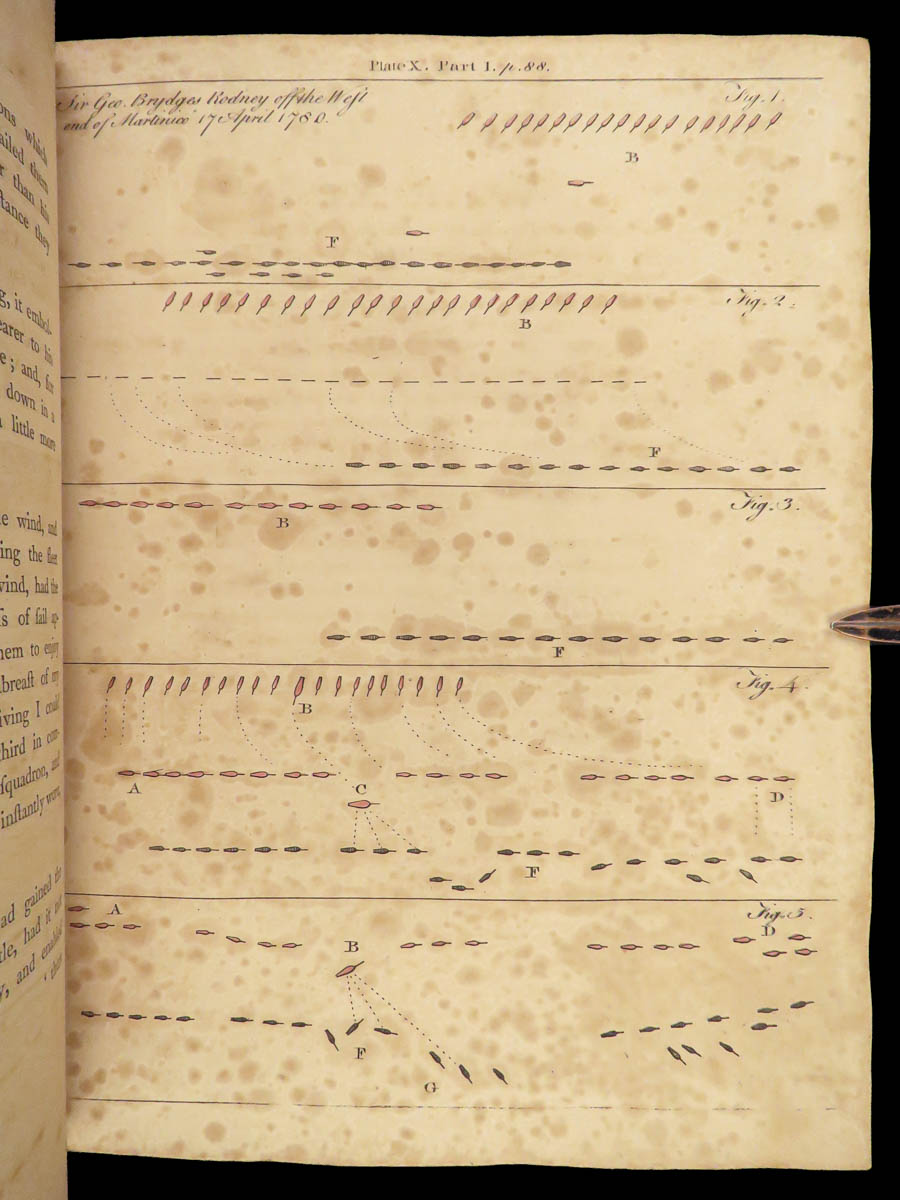 Plate X. Part I. p. 88.
Sir Geo. Brydges Rodney off the West
end of Martinico 17 April 1780.
Fig. 1.
B
F
Fig. 2.
B
F
Fig. 3.
B
F
Fig. 4.
B
A
C
D
F
Fig. 5.
A
D
B
F
G
ons which
ailed them
r than his
ſtance they
g, it embol-
earer to his
e; and, for
down in a
a little more
e wind, and
ing the fleet
wind, had the
ſs of ſail ap-
hem to enjoy
abreaſt of my
iving I could
third in com-
ſquadron, and
inſtantly wore,
ad gained the
tle, had it not
y, and enabled